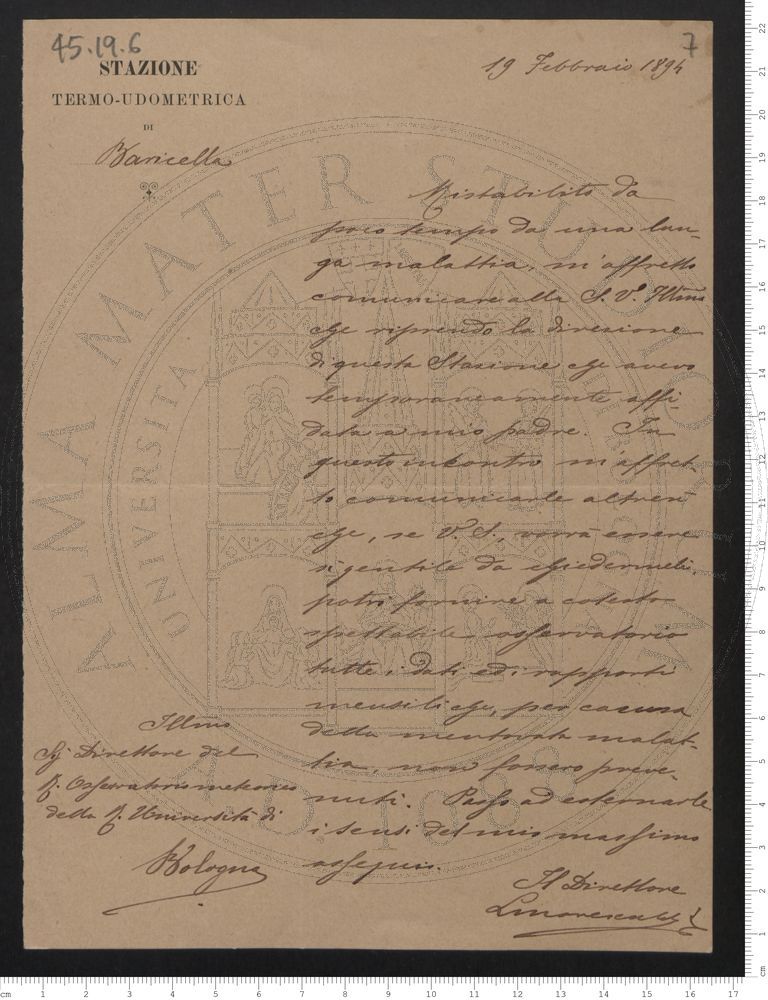 45.19.6
7
STAZIONE
TERMO-UDOMETRICA
DI
Baricella
19 Febbraio 1894
Ristabilito da
poco tempo da una lun-
ga malattia, m'affretto
comunicare alla S. V. Illma
che riprendo la direzione
di questa Stazione che avevo
temporaneamente affi-
data a mio padre. In
questo incontro m'affret-
to comunicarle altresì
che, se V. S., vorrà essere
sì gentile da chiedermeli,
potrò fornire a cotesto
spettabile osservatorio
tutti i dati ed i rapporti
mensili che, per causa
della mentovata malat-
tia, non fossero perve-
nuti. Passo ad esternarle
i sensi del mio massimo
ossequio.
Il Direttore
Illmo
Sig. Direttore del
R. Osservatorio meteorico
della R. Università di
Bologna
ALMA MATER STUDIORUM
UNIVERSITA
A.D. 1088